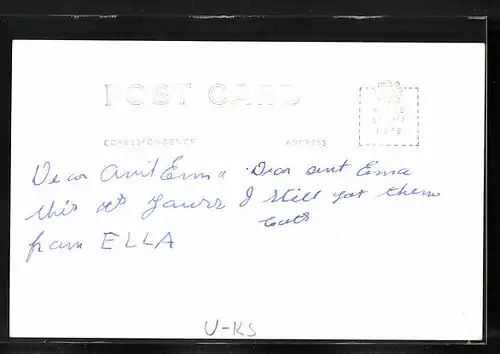 POST CARD
CORRESPONDENCE
ADDRESS
PLACE
STAMP
HERE
Dear Anit Ema
this at yours
from ELLA
Dear ant Ema
I still got them
cats
U-KS